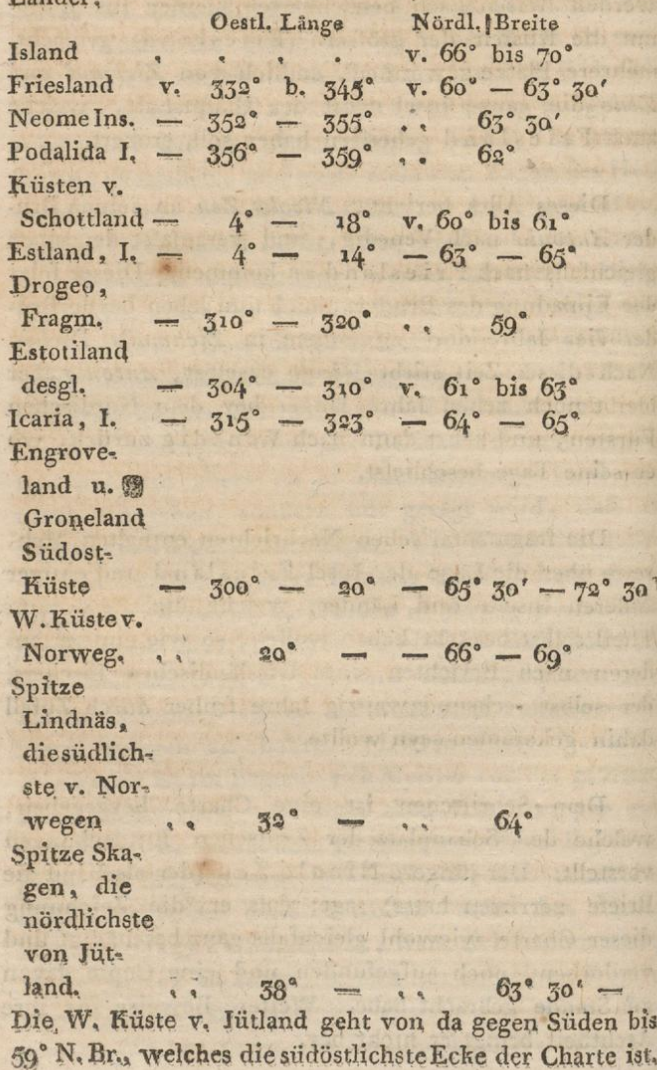 Länder.
Oestl. Länge Nördl. Breite
Island , . . . v. 66° bis 70°
Friesland v. 332° b. 345° v. 60° — 63° 30′
Neome Ins. — 352° — 355° . . 63° 30′
Podalida I. — 356° — 359° . . 62°
Küsten v.
Schottland — 4° — 18° v. 60° bis 61°
Estland, I. — 4° — 14° — 63° — 65°
Drogeo,
Fragm. — 310° — 320° . . 59°
Estotiland
desgl. — 304° — 310° v. 61° bis 63°
Icaria, I. — 315° — 323° — 64° — 65°
Engrove-
land u.
Groneland
Südost-
Küste — 300° — 20° — 65° 30′ — 72° 30′
W. Küste v.
Norweg. . . 20° — — 66° — 69°
Spitze
Lindnäs,
die südlich-
ste v. Nor-
wegen . . 32° — . . 64°
Spitze Ska-
gen, die
nördlichste
von Jüt-
land. . . 38° — . . 63° 30′ —
Die W. Küste v. Jütland geht von da gegen Süden bis
59° N. Br., welches die südöstlichste Ecke der Charte ist.